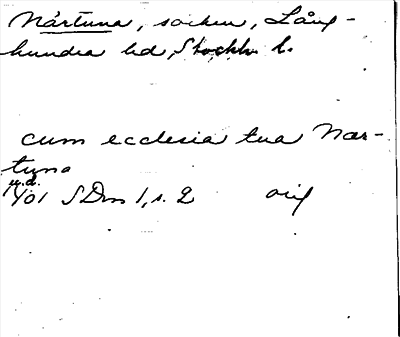 Närtuna, socken, Lång-
hundra hd, Stockh. l.
cum ecclesia tua Nar-
tuna
u.d.
1401 SDns 1, s. 2 orig